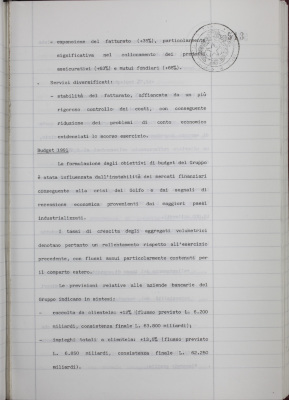 - espansione del fatturato (+39%), particolarmente
significativa nel collocamento dei prodotti
assicurativi (+60%) e mutui fondiari (+40%).
- Servizi diversificati:
- stabilità del fatturato, affiancata da un più
rigoroso controllo dei costi, con conseguente
riduzione dei problemi di conto economico
evidenziati lo scorso esercizio.
Budget 1991
La formulazione degli obiettivi di budget del Gruppo
è stata influenzata dall'instabilità dei mercati finanziari
conseguente alla crisi del Golfo e dai segnali di
recessione economica provenienti dai maggiori paesi
industrializzati.
I tassi di crescita degli aggregati volumetrici
denotano pertanto un rallentamento rispetto all'esercizio
precedente, con flussi annui particolarmente contenuti per
il comparto estero.
Le previsioni relative alle aziende bancarie del
Gruppo indicano in sintesi:
- raccolta da clientela: (flusso previsto L. 6.200
miliardi, consistenza finale L. 63.800 miliardi);
- impieghi totali a clientela: (flusso previsto
L. miliardi, consistenza finale L. 60.250
miliardi).